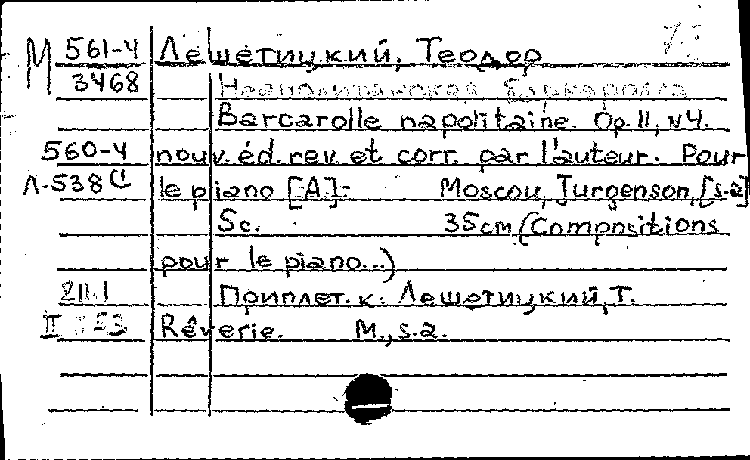 М 561-4 Лешетицкий, Теодор
3468 Неаполитанская баркаролла
Barcarolle napolitaine. Op.11, N4.
560-4 nouv. éd. rev. et corr. par l'auteur. Pour
Л-538 le piano [A]- Moscou, Jurgenson, [s.a]
Sc. 35cm (Compositions
pour le piano...)
211.1 Приплет. к: Лешетицкий, Т.
II Rêverie. М., s.a.